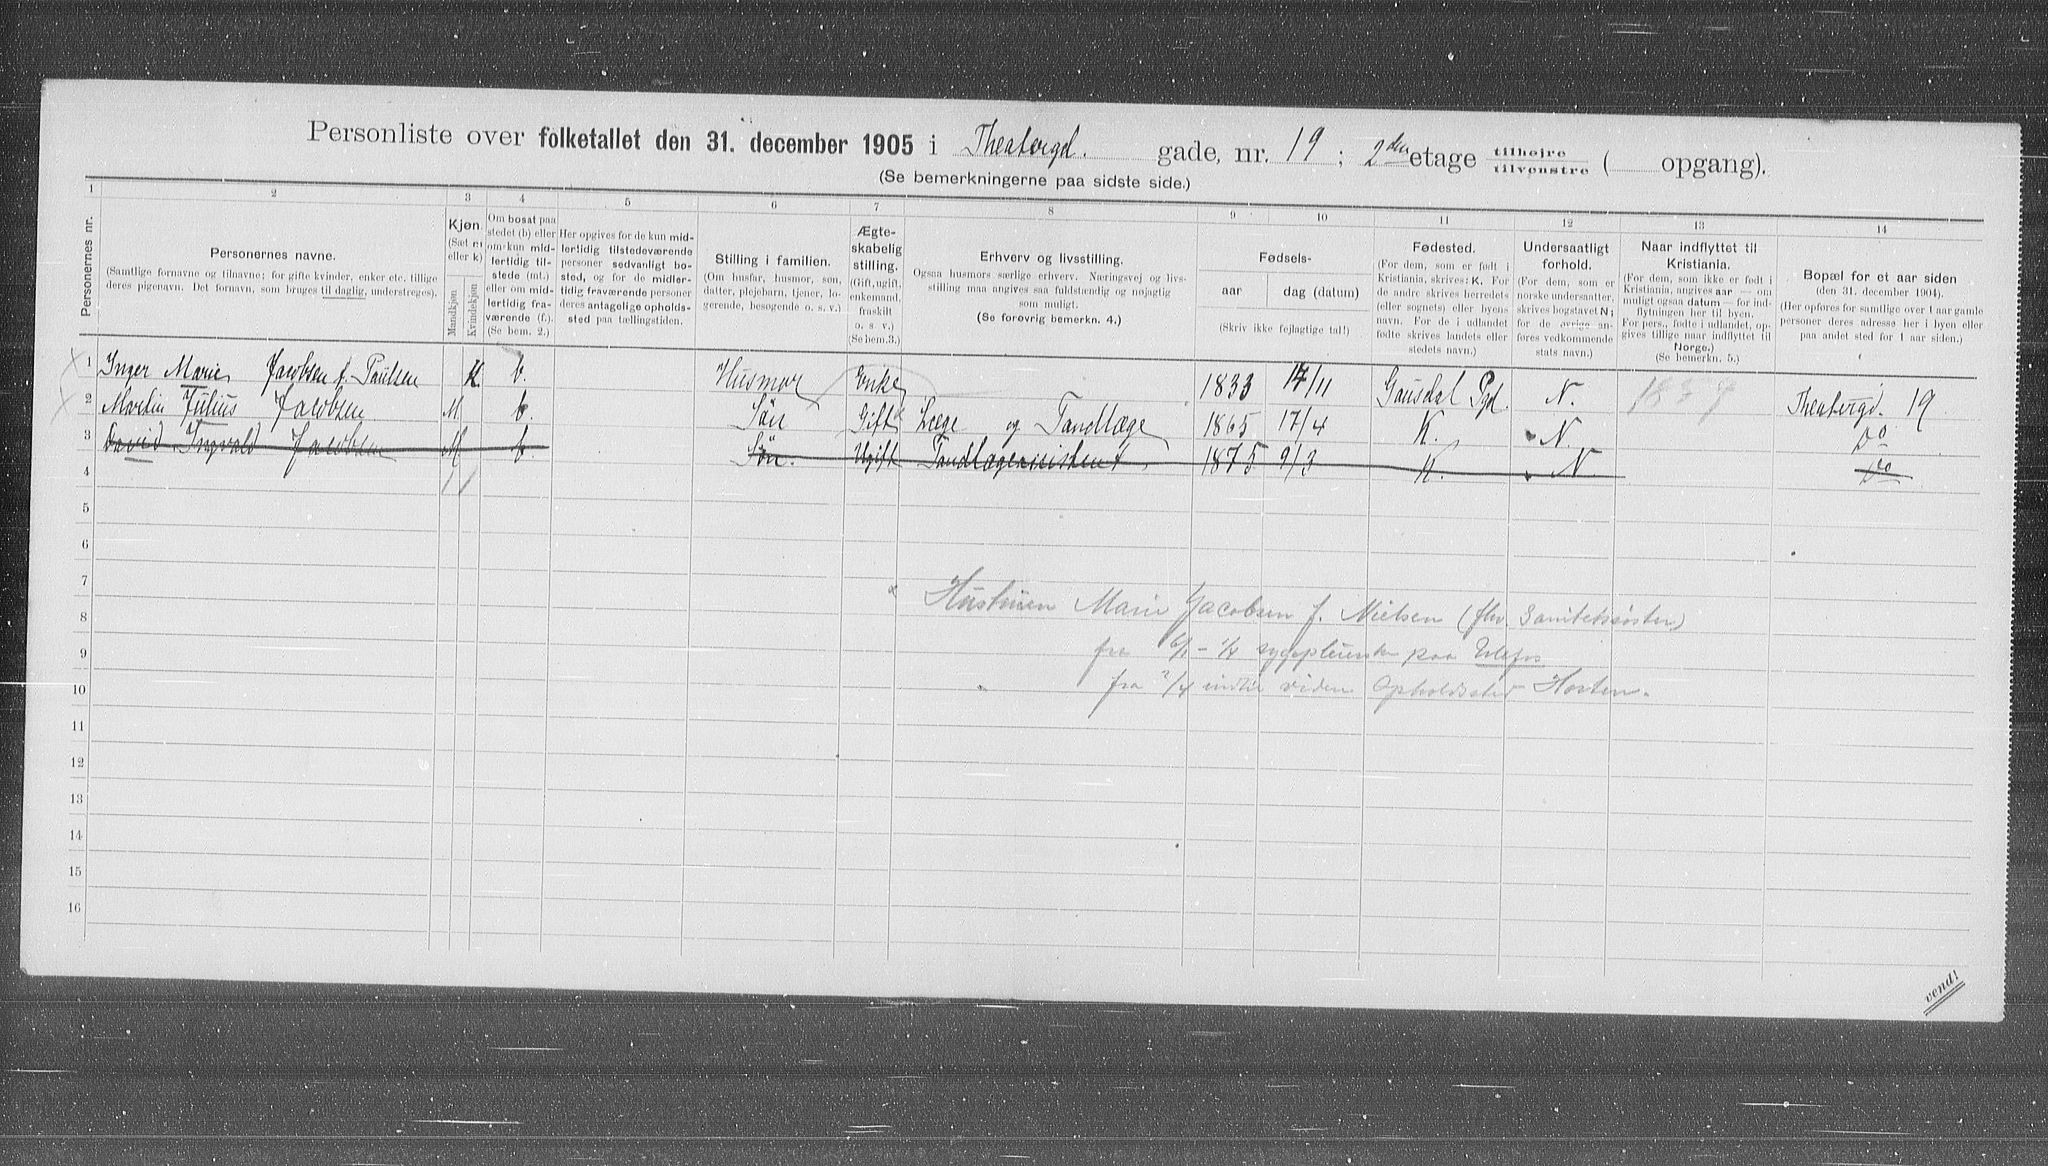 Personliste over folketallet den 31. december 1905 i Theatergd. gade, nr. 19 ; 2den etage tilhøjre tilvenstre ( opgang).
(Se bemerkningerne paa sidste side.)
1 2 3 4 5 6 7 8 9 10 11 12 13 14
Personernes nr.
Personernes navne.
(Samtlige fornavne og tilnavne; for gifte kvinder, enker etc. tillige
deres pigenavn. Det fornavn, som bruges til daglig, understreges).
Kjøn.
(Sæt m
eller k)
Mandkjøn
Kvindekjøn
Om bosat paa
stedet (b) eller
om kun mid-
lertidig til-
stede (mt.)
eller om mid-
lertidig fra-
værende (f.).
(Se bem. 2.)
Her opgives for de kun mid-
lertidig tilstedeværende
personer sedvanligt bo-
sted, og for de midler-
tidig fraværende personer
deres antagelige opholds-
sted paa tællingstiden.
Stilling i familien.
(Om husfar, husmor, søn,
datter, plejebarn, tjener, lo-
gerende, besøgende o. s. v.)
Ægte-
skabelig
stilling.
(Gift, ugift,
enkemand,
fraskilt
o. s. v.)
(Se bem.3.)
Erhverv og livsstilling.
Ogsaa husmors særlige erhverv. Næringsvej og livs-
stilling maa angives saa fuldstændig og nøjagtig
som muligt.
(Se forøvrig bemerkn. 4.)
Fødsels-
aar
dag (datum)
(Skriv ikke fejlagtige tal!)
Fødested.
(For dem, som er født i
Kristiania, skrives: K. For
de andre skrives herredets
(eller sognets) eller byens
navn. For de i udlandet
fødte skrives landets eller
stedets navn.)
Undersaatligt
forhold.
(For dem, som er
norske undersaatter,
skrives bogstavet N;
for de øvrige an-
føres vedkommende
stats navn.)
Naar indflyttet til
Kristiania.
(For dem, som ikke er født i
Kristiania, angives aar — om
muligt ogsaa datum — for ind-
flytningen her til byen.
For pers., fødte i udlandet, op-
gives tillige naar indflyttet til
Norge.)
(Se bemerkn. 5.)
Bopæl for et aar siden
(den 31. december 1904).
(Her opføres for samtlige over 1 aar gamle
personer deres adresse her i byen eller
paa andet sted for 1 aar siden.)
1 Inger Marie Jacobsen f. Paulsen K b. Husmor Enke 1833 17/11 Gausdal Pgd. N. 1857 Theatergd. 19
2 Martin Julius Jacobsen M b. Søn Gift x Læge og Tandlæge 1865 17/4 K. N. Do
3 David Ingvald Jacobsen M b. Søn. Ugift Tandlægeassistent. 1875 9/3 K. N Do
4
5
6
7 x Hustruen Marie Jacobsen f. Nielsen (fhv. Sanitetssøster)
8
9 fra 6/1 – 1/4 sygepleierske paa Ulefos
10 fra 2/4 indtil viden Opholdssted Horten.
11
12
13
14
15
16
vend!